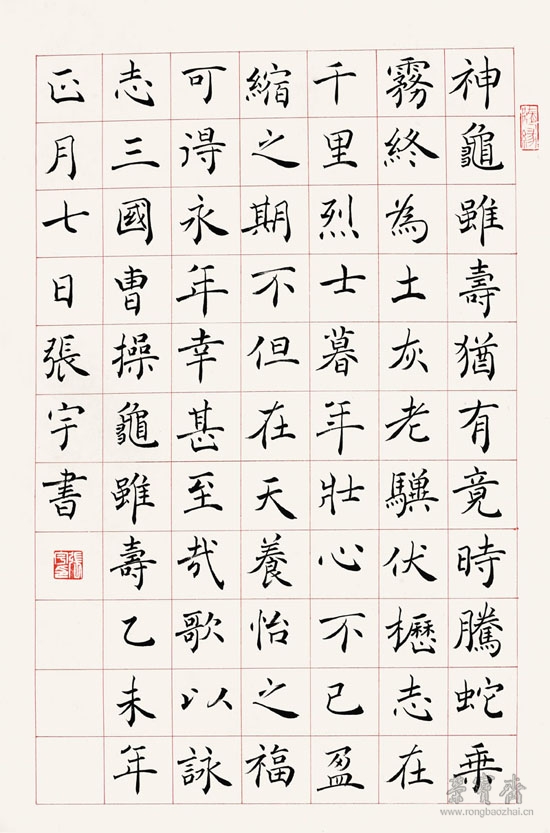 神龜雖壽猶有竟時騰蛇乗
霧終為土灰老驥伏櫪志在
千里烈士暮年壯心不已盈
縮之期不但在天養怡之福
可得永年幸甚至哉歌以詠
志三國曹操龜雖壽乙未年
正月七日張宇書
榮寶齋
www.rongbaozhai.cn